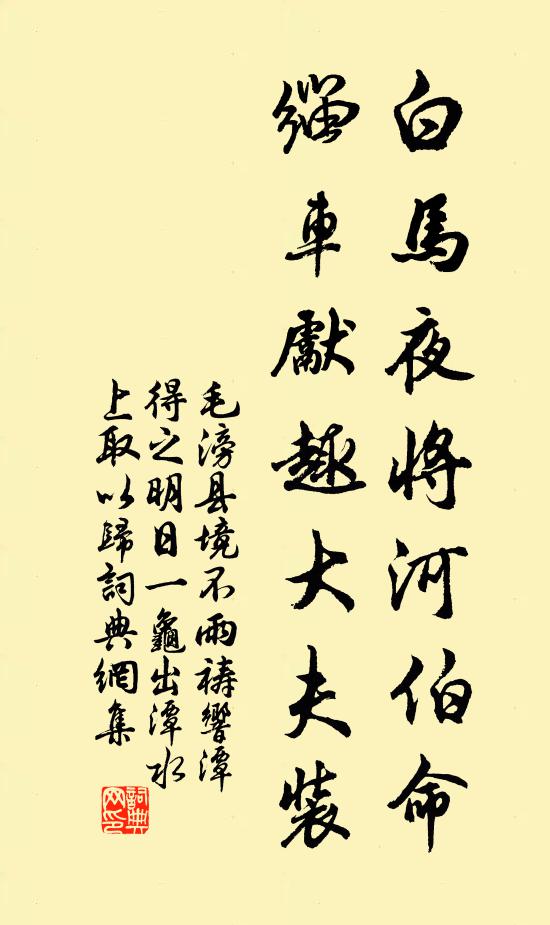 白馬夜將河伯命
緇車獻趣大夫裝
毛滂县境不雨禱響潭
得之明日一龜出潭水
上取以歸詞典網集
詞典網印